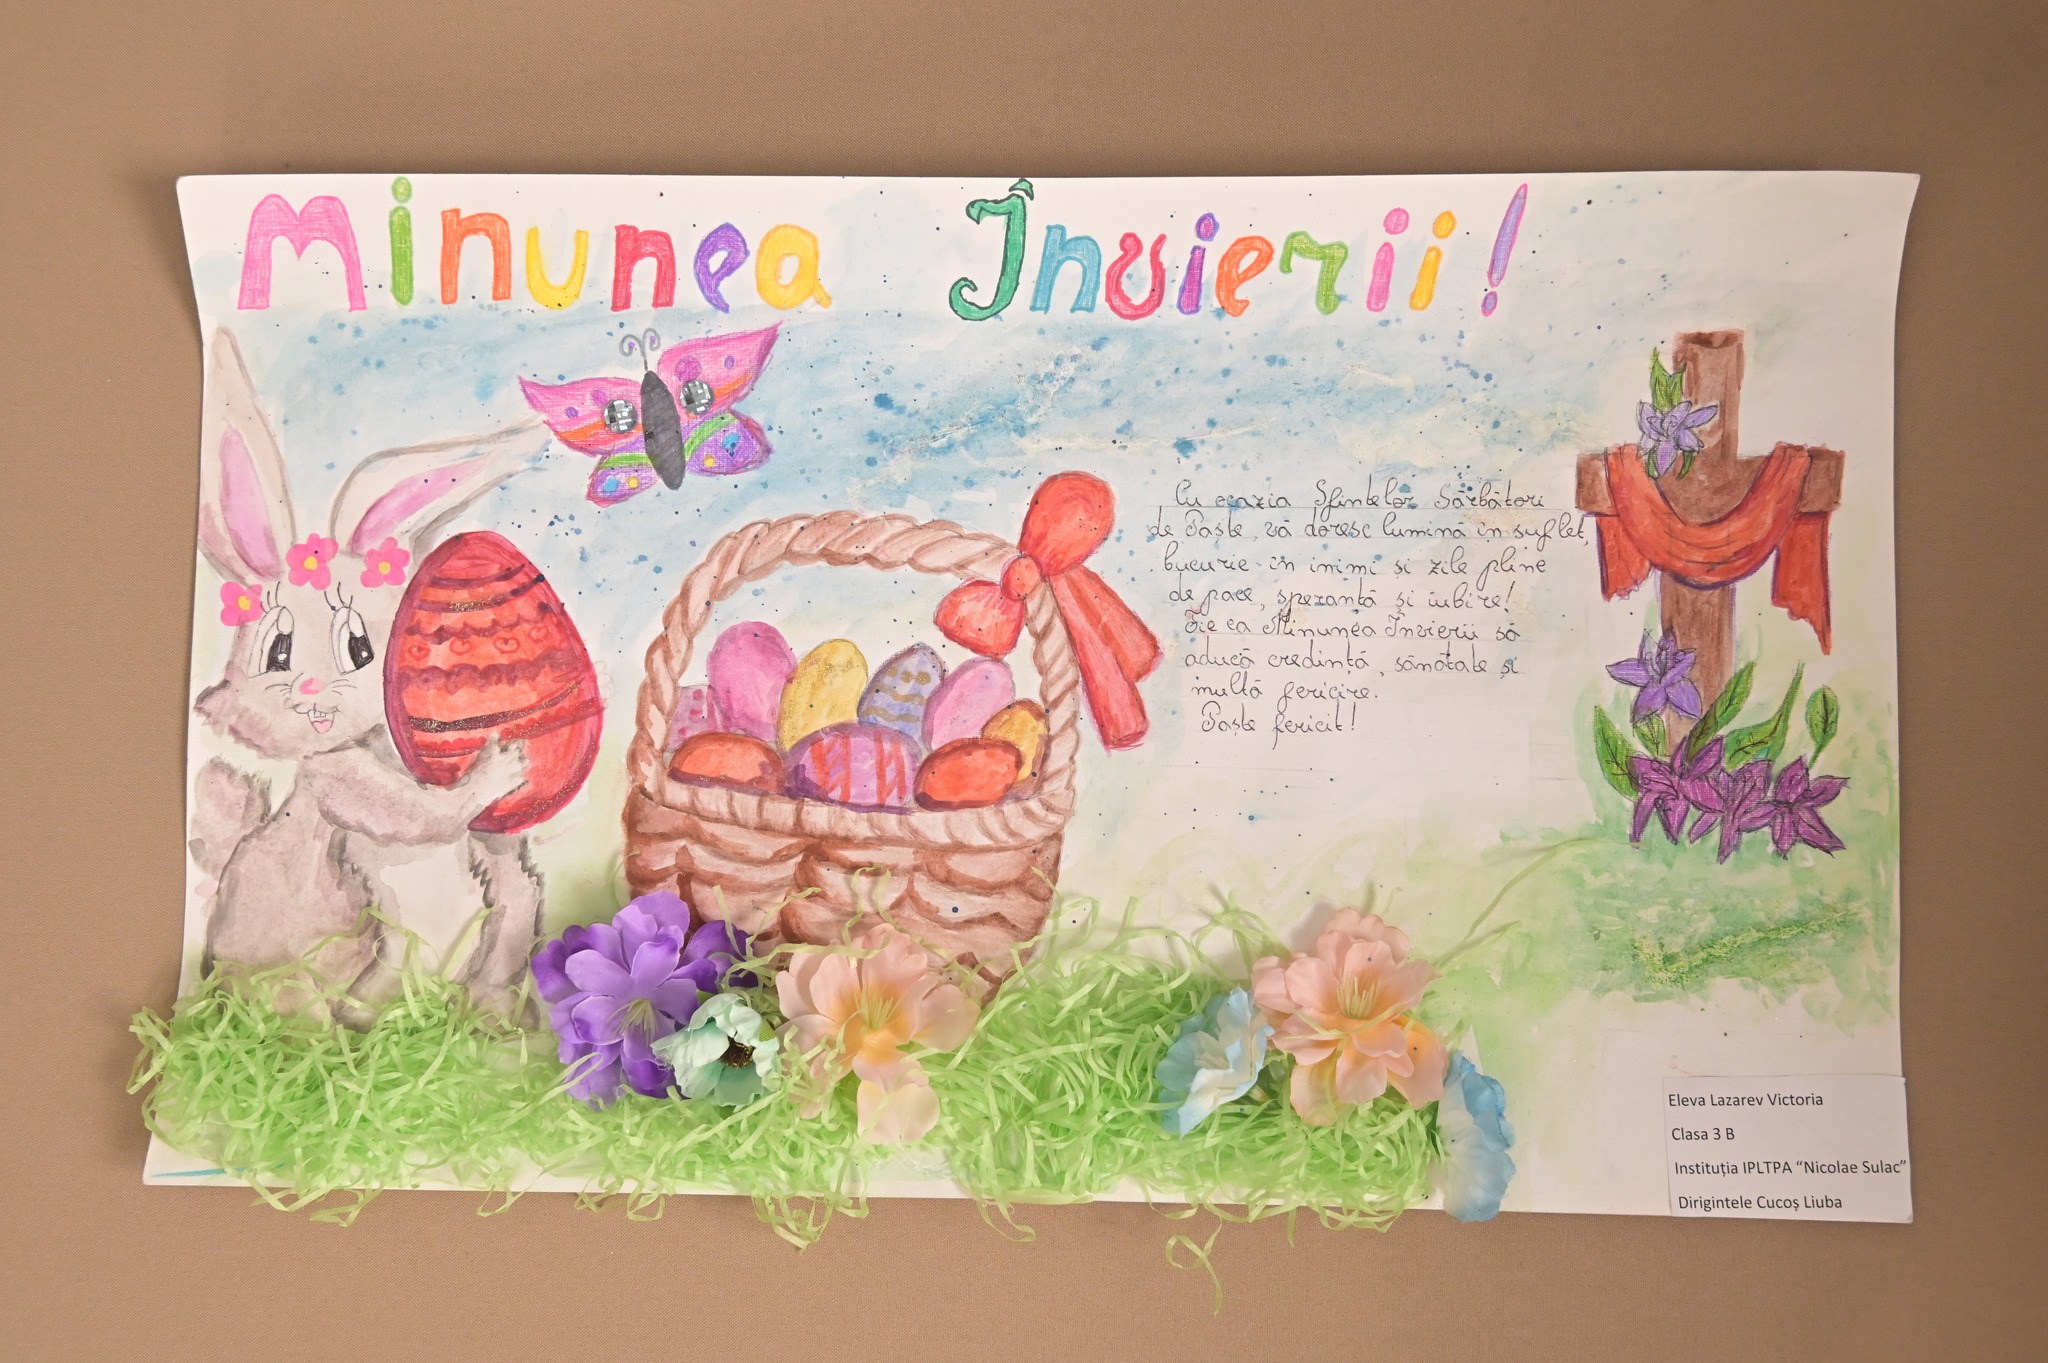 Minunea Învierii!
Cu ocazia Sfintelor Sărbători
de Paște, vă doresc lumină în suflet,
bucurie în inimi și zile pline
de pace, speranță și iubire!
Fie ca Minunea Învierii să
aducă credință, sănătate și
multă fericire.
Paște fericit!
Eleva Lazarev Victoria
Clasa 3 B
Instituția IPLTPA “Nicolae Sulac”
Dirigintele Cucoș Liuba